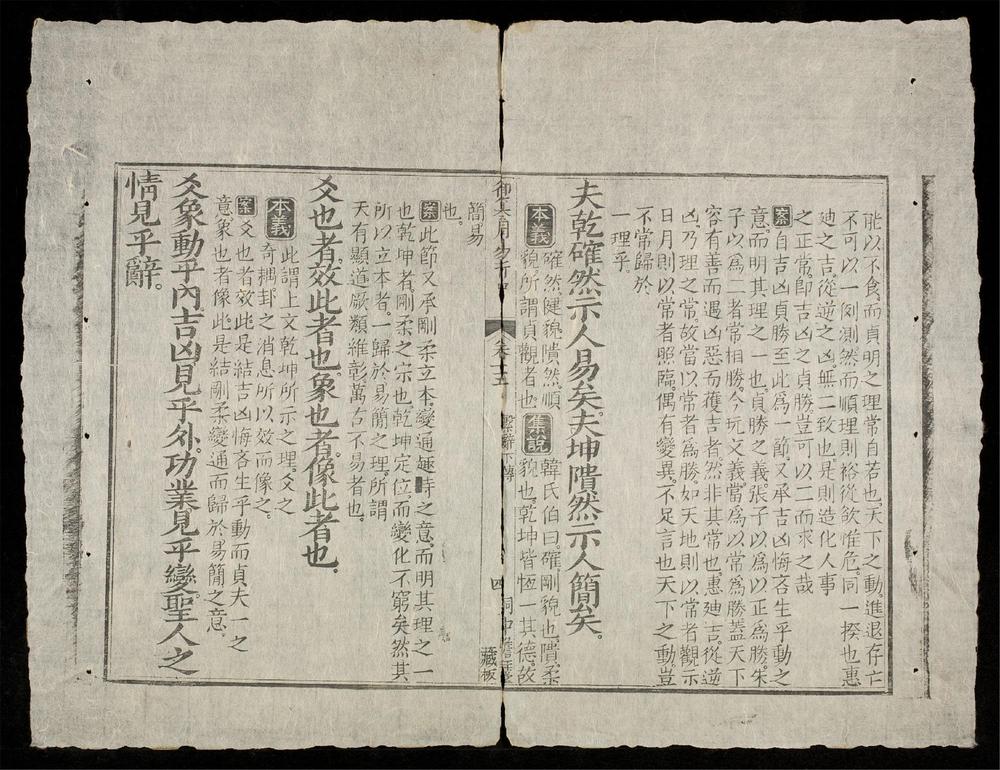 能以不食而貞明之理常自若也天下之動進退存亡
不可以一例測然而順理則裕從欲惟危同一揆也惠
廸之吉從逆之凶無二致也是則造化人事
之正常即吉凶之貞勝豈可以二而求之哉
案自吉凶貞勝至此為一節又承吉凶悔吝生乎動之
意而明其理之一也貞勝之義張子以為以正為勝朱
子以為二者常相勝今玩文義當為以常為勝蓋天下
容有善而遇凶惡而獲吉者然非其常也惠廸吉從逆
凶乃理之常故當以常者為勝如天地則以常者觀示
日月則以常者照臨偶有變異不足言也天下之動豈
不常歸於
一理乎
夫乾確然示人易矣夫坤隤然示人簡矣
本義 確然健貌隤然順
貌所謂貞觀者也
集說 韓氏伯曰確剛貌也隤柔
貌也乾坤皆恆一其德故
簡易
也
御纂周易折中 卷十五 繫辭下傳 四
藏板
案此節又承剛柔立本變通趣時之意而明其理之一
也乾坤者剛柔之宗也乾坤定位而變化不窮矣然其
所以立本者一歸於易簡之理所謂
天有顯道厥類維彰萬古不易者也
爻也者效此者也象也者像此者也
本義 此謂上文乾坤所示之理爻之
奇耦卦之消息所以效而像之
案爻也者效此是結吉凶悔吝生乎動而貞夫一之
意象也者像此是結剛柔變通而歸於易簡之意
爻象動乎內吉凶見乎外功業見乎變聖人之
情見乎辭